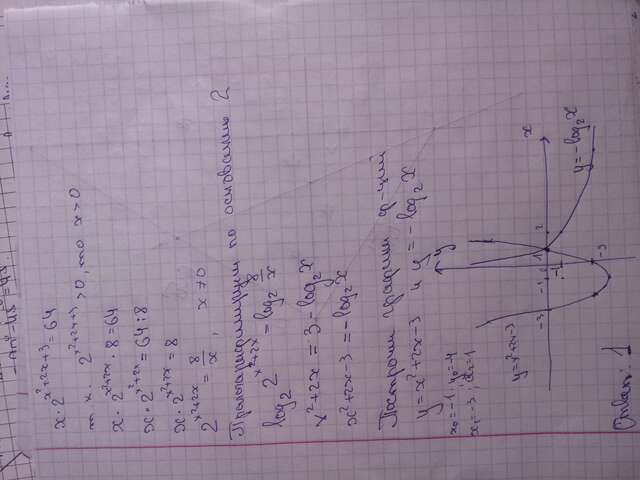 x · 2^{x²+2x+3} = 64
т.к. 2^{x²+2x+3} > 0, то x > 0
x · 2^{x²+2x} · 8 = 64
x · 2^{x²+2x} = 64 : 8
x · 2^{x²+2x} = 8
2^{x²+2x} = 8/x, x ≠ 0
Прологарифмируем по основанию 2
log₂ 2^{x²+2x} = log₂ 8/x
x²+2x = 3 - log₂x
x²+2x-3 = -log₂x
Построим графики ф-ций
y = x²+2x-3 и y = -log₂x
x₀ = -1, y₀ = -4
x₁ = -3; x₂ = 1
y
x
-3
-1
1
2
-1
-3
y = x²+2x-3
y = -log₂x
Ответ: 1